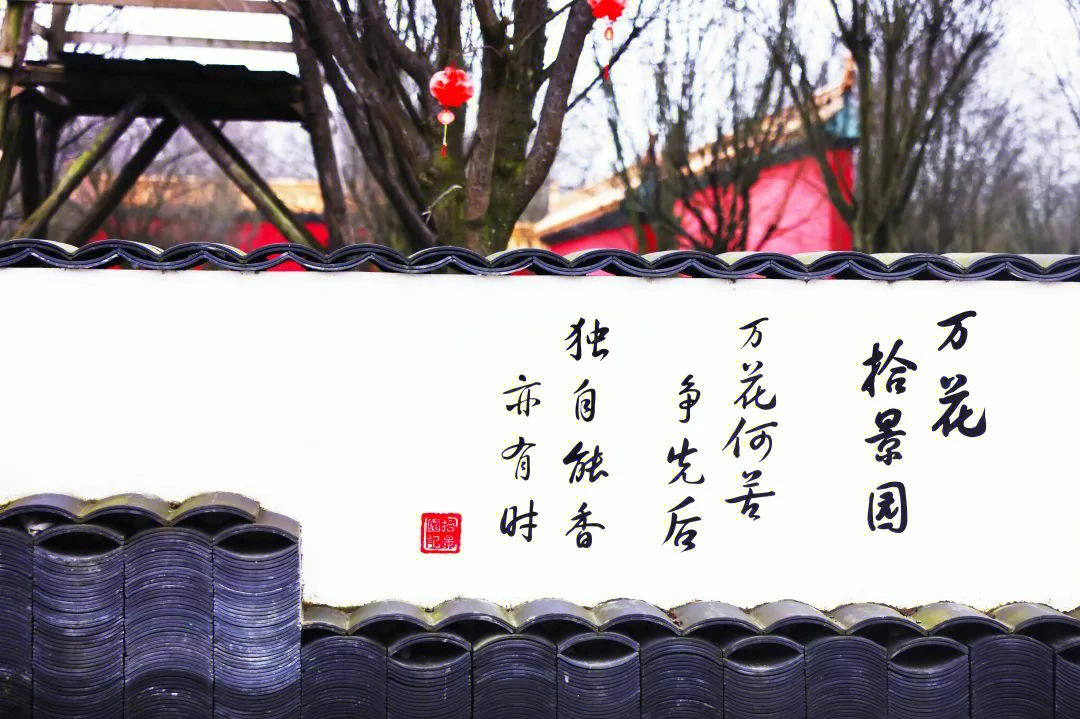 万花
拾景园
万花何苦
争先后
独自能香
亦有时
拾景
園記